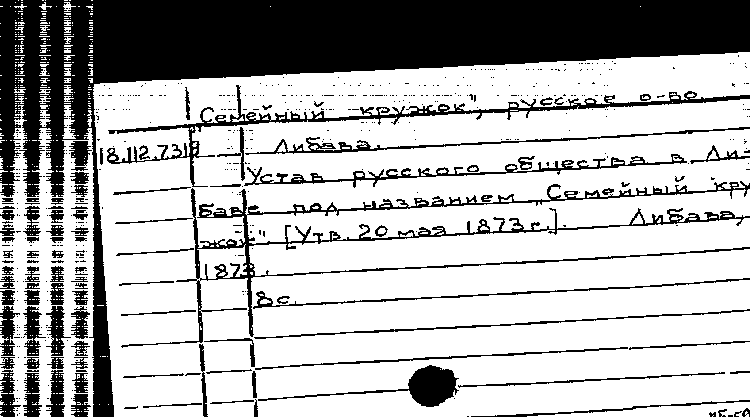 „Семейный кружок", русское о-во.
Либава.
18.112.7319
Устав русского общества в Ли-
баве под названием „Семейный кру
жок". [Утв. 20 мая 1873 г.]. Либава,
1873.
8 с.